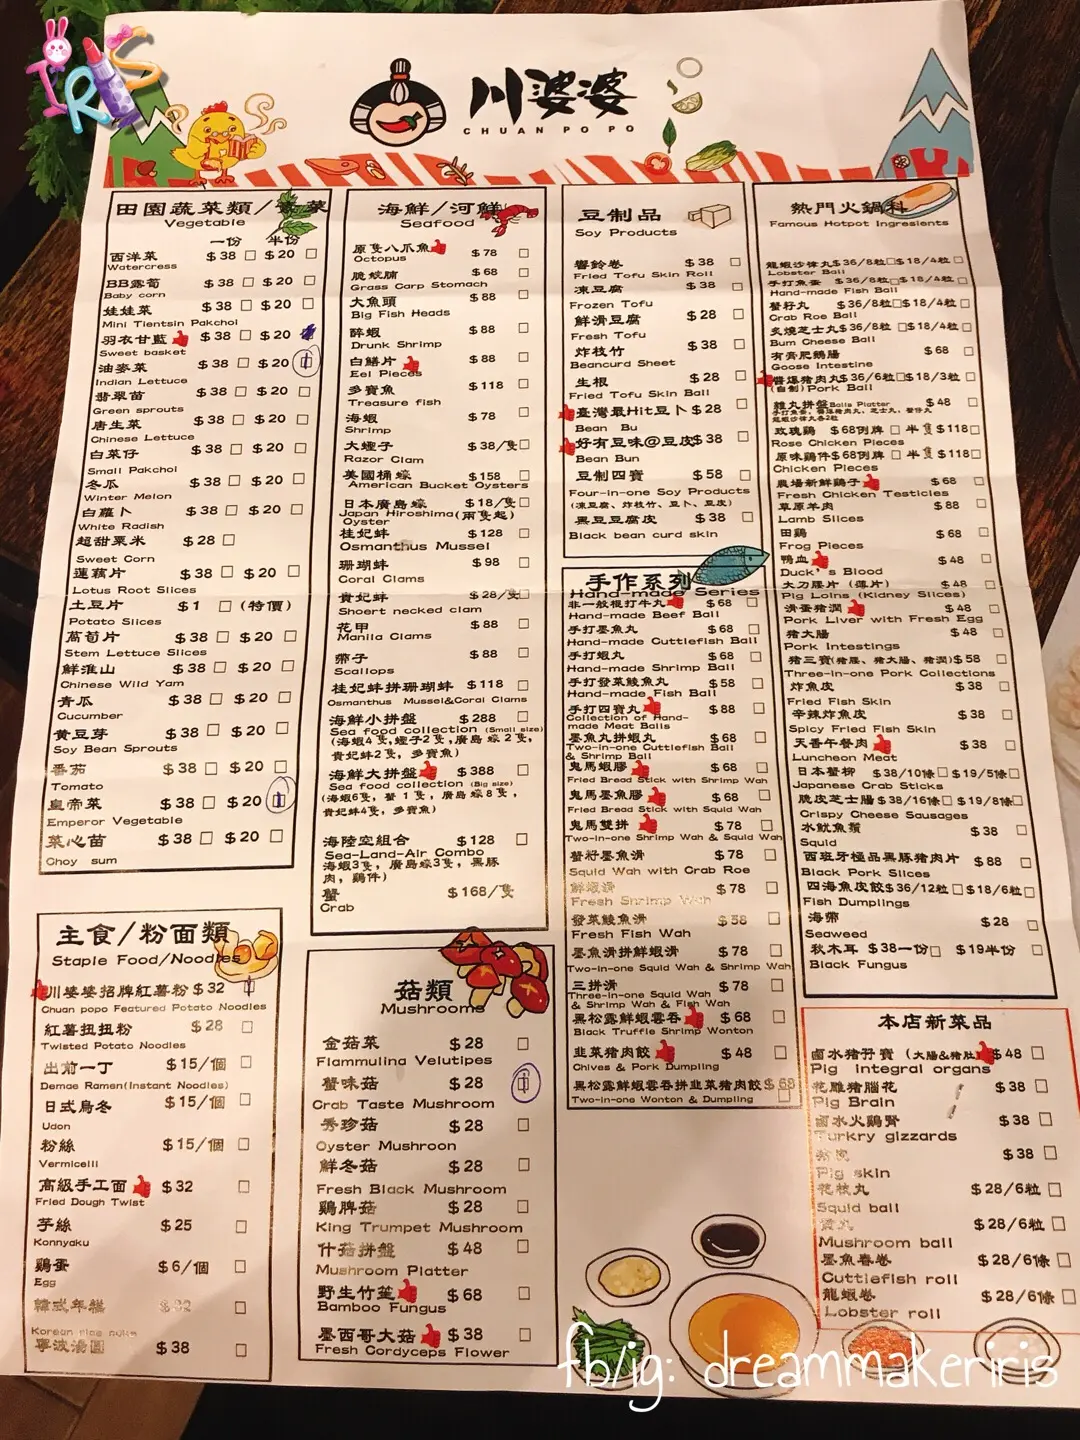 IRIS
川婆婆
CHUAN PO PO
田園蔬菜類/
Vegetable
一份 半份
西洋菜 $38 □ $20 □
Watercress
BB露荀 $38 □ $20 □
Baby corn
娃娃菜 $38 □ $20 □
Mini Tientsin Pakchoi
羽衣甘藍 $38 □ $20
Sweet basket
油麥菜 $38 □ $20 □
Indian Lettuce
翡翠苗 $38 □ $20 □
Green sprouts
唐生菜 $38 □ $20 □
Chinese Lettuce
白菜仔 $38 □ $20 □
Small Pakchoi
冬瓜 $38 □ $20 □
Winter Melon
白蘿卜 $38 □ $20 □
White Radish
超甜粟米 $28 □
Sweet Corn
蓮藕片 $38 □ $20 □
Lotus Root Slices
土豆片 $1 □ (特價)
Potato Slices
萵荀片 $38 □ $20 □
Stem Lettuce Slices
鮮淮山 $38 □ $20 □
Chinese Wild Yam
青瓜 $38 □ $20 □
Cucumber
黃豆芽 $38 □ $20 □
Soy Bean Sprouts
番茄 $38 □ $20 □
Tomato
皇帝菜 $38 □ $20 □
Emperor Vegetable
菜心苗 $38 □ $20 □
Choy sum
主食/粉面類
Staple Food/Noodles
川婆婆招牌紅薯粉 $32 □
Chuan popo Featured Potato Noodles
紅薯扭扭粉 $28 □
Twisted Potato Noodles
出前一丁 $15/個 □
Demae Ramen(Instant Noodles)
日式烏冬 $15/個 □
Udon
粉絲 $15/個 □
Vermicelli
高級手工面 $32 □
Fried Dough Twist
芋絲 $25 □
Konnyaku
鷄蛋 $6/個 □
Egg
韓式年糕 $32 □
Korean rice
寧波湯圓 $38 □
海鮮/河鮮
Seafood
原隻八爪魚 $78 □
Octopus
脆鯇腩 $68 □
Grass Carp Stomach
大魚頭 $88 □
Big Fish Heads
醉蝦 $88 □
Drunk Shrimp
白鱔片 $88 □
Eel Pieces
多寶魚 $118 □
Treasure fish
海蝦 $78 □
Shrimp
大蟶子 $38/隻□
Razor Clam
美國桶蠔 $158 □
American Bucket Oysters
日本廣島蠔 $18/隻□
Japan Hiroshima(兩隻起)
Oyster
桂妃蚌 $128 □
Osmanthus Mussel
珊瑚蚌 $98 □
Coral Clams
貴妃蚌 $28/隻□
Shoert necked clam
花甲 $88 □
Manila Clams
帶子 $88 □
Scallops
桂妃蚌拼珊瑚蚌 $118 □
Osmanthus Mussel&Coral Clams
海鮮小拼盤 $288 □
Sea food collection (Small size)
(海蝦4隻,蟶子2隻,廣島蠔2隻,
貴妃蚌2隻, 多寶魚)
海鮮大拼盤 $388 □
Sea food collection (Big size)
(海蝦6隻, 蟹1隻, 廣島蠔8隻,
貴妃蚌4隻, 多寶魚)
海陸空組合 $128 □
Sea-Land-Air Combo
海蝦3隻, 廣島蠔3隻, 黑豚
肉, 鷄件)
蟹 $168/隻
Crab
菇類
Mushrooms
金菇菜 $28 □
Flammulina Velutipes
蟹味菇 $28 □
Crab Taste Mushroom
秀珍菇 $28 □
Oyster Mushroon
鮮冬菇 $28 □
Fresh Black Mushroom
鷄脾菇 $28 □
King Trumpet Mushroom
什菇拼盤 $48 □
Mushroom Platter
野生竹笙 $68 □
Bamboo Fungus
墨西哥大菇 $38 □
Fresh Cordyceps Flower
豆制品
Soy Products
響鈴卷 $38 □
Fried Tofu Skin Roll
凍豆腐 $38 □
Frozen Tofu
鮮滑豆腐 $28 □
Fresh Tofu
炸枝竹 $38 □
Beancurd Sheet
生根 $28 □
Fried Tofu Skin Ball
臺灣最Hit豆卜 $28 □
Bean Bu
好有豆味@豆皮$38 □
Bean Bun
豆制四寶 $58 □
Four-in-one Soy Products
(凍豆腐、炸枝竹、豆卜、豆皮)
黑豆豆腐皮 $38 □
Black bean curd skin
手作系列
Hand-made Series
非一般棍打牛丸 $68 □
Hand-made Beef Ball
手打墨魚丸 $68 □
Hand-made Cuttlefish Ball
手打蝦丸 $68 □
Hand-made Shrimp Ball
手打發菜鯪魚丸 $58 □
Hand-made Fish Ball
手打四寶丸 $88 □
Collection of Hand-
made Meat Balls
墨魚丸拼蝦丸 $68 □
Two-in-one Cuttlefish Ball
& Shrimp Ball
鬼馬蝦膠 $68 □
Fried Bread Stick with Shrimp Wah
鬼馬墨魚膠 $68 □
Fried Bread Stick with Squid Wah
鬼馬雙拼 $78 □
Two-in-one Shrimp Wah & Squid Wah
蟹籽墨魚滑 $78 □
Squid Wah with Crab Roe
鮮蝦滑 $78 □
Fresh Shrimp Wah
發菜鯪魚滑 $58 □
Fresh Fish Wah
墨魚滑拼鮮蝦滑 $78 □
Two-in-one Squid Wah & Shrimp Wah
三拼滑 $78 □
Three-in-one Squid Wah
& Shrimp Wah & Fish Wah
黑松露鮮蝦雲吞 $68 □
Black Truffle Shrimp Wonton
韭菜猪肉餃 $48 □
Chives & Pork Dumpling
黑松露鮮蝦雲吞拼韭菜猪肉餃 $68
Two-in-one Wonton & Dumpling
熱門火鍋料
Famous Hotpot Ingresients
龍蝦沙律丸$36/8粒□$18/4粒□
Lobster Ball
手打魚蛋 $36/8粒□$18/4粒□
Hand-made Fish Ball
蟹籽丸 $36/8粒 □$18/4粒□
Crab Roe Ball
炙燒芝士丸$36/8粒 □$18/4粒□
Bum Cheese Ball
有膏肥鵝腸 $68 □
Goose Intestine
醬爆猪肉丸$36/6粒□$18/3粒□
(自制) Pork Ball
雜丸拼盤Balls Platter $48 □
玫瑰鷄 $68例牌 □ 半隻$118□
Rose Chicken Pieces
原味鷄件$68例牌 □ 半隻$118□
Chicken Pieces
農場新鮮鷄子 $68 □
Fresh Chicken Testicles
草原羊肉 $88 □
Lamb Slices
田鷄 $68 □
Frog Pieces
鴨血 $48 □
Duck's Blood
大刀腰片 (薄片) $48 □
Pig Loins (Kidney Slices)
滑蛋猪潤 $48 □
Pork Liver with Fresh Egg
猪大腸 $48 □
Pork Intestings
猪三寶(猪腰、猪大腸、猪潤)$58 □
Three-in-one Pork Collections
炸魚皮 $38 □
Fried Fish Skin
辛辣炸魚皮 $38 □
Spicy Fried Fish Skin
天香午餐肉 $38 □
Luncheon Meat
日本蟹柳 $38/10條□$19/5條□
Japanese Crab Sticks
脆皮芝士腸$38/16條□$19/8條□
Crispy Cheese Sausages
水魷魚鬚 $38 □
Squid
西班牙極品黑豚猪肉片 $88 □
Black Pork Slices
四海魚皮餃$36/12粒□$18/6粒□
Fish Dumplings
海帶 $28 □
Seaweed
秋木耳 $38一份□ $19半份 □
Black Fungus
本店新菜品
鹵水猪孖寶 (大腸&猪肚) $48 □
Pig Integral organs
花雕猪腦花 $38 □
Pig Brain
鹵水火鷄腎 $38 □
Turkry gizzards
$38 □
Pig skin
花枝丸 $28/6粒 □
Squid ball
$28/6粒 □
Mushroom ball
墨魚春卷 $28/6條 □
Cuttlefish roll
龍蝦卷 $28/6條 □
Lobster roll
fb/ig: dreammakeriris